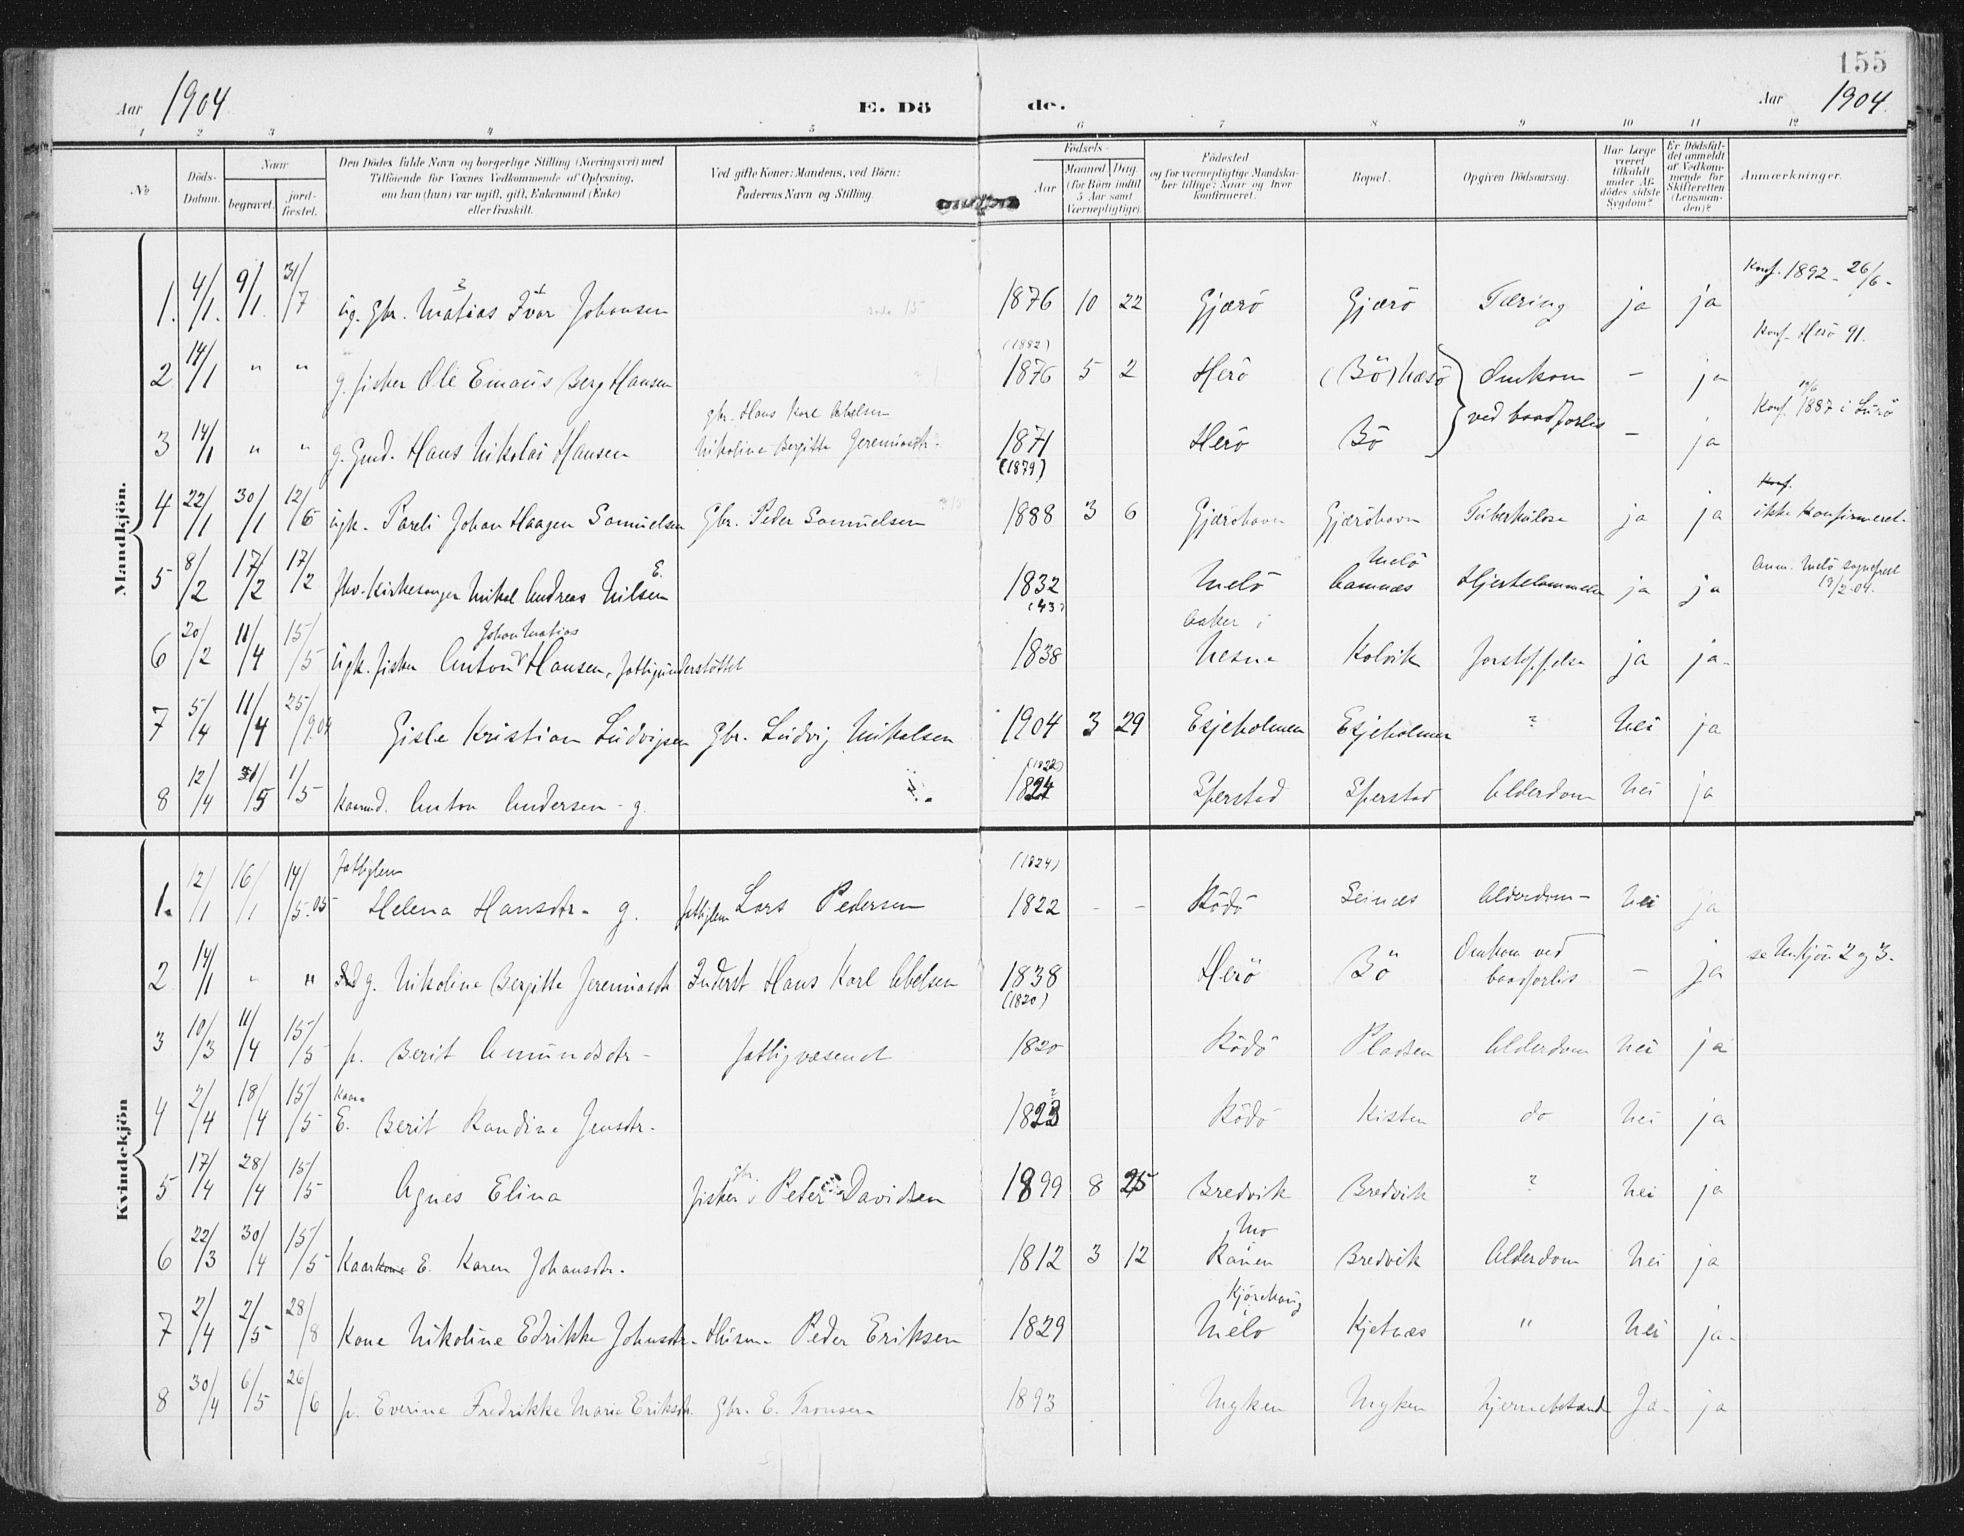 155
Aar 1904 E. Döde. Aar 1904.
1 2 3 4 5 6 7 8 9 10 11 12
No
Döds-Datum.
Naar
begravet.
jord-fæstet.
Den Dödes fulde Navn og borgerlige Stilling (Næringsvei) med
Tilföiende for Voxnes Vedkommende af Oplysning,
om han (hun) var ugift, gift, Enkemand (Enke)
eller fraskilt.
Ved gifte Koner: Mandens, ved Börn:
Faderens Navn og Stilling.
Födsels-
Aar
Maaned Dag
(for Börn indtil
5 Aar samt
Værnepligtige).
Födested
og for værnepligtige Mandska-
ber tillige: Naar og hvor
konfirmeret.
Bopæl.
Opgiven Dödsaarsag.
Har Læge
været
tilkaldt
under Af-
dödes sidste
Sygdom?
Er Dödsfal-
det anmeldt
af Vedkom-
mende for
Skifteretten
(Lensman-
den)?
Anmærkninger.
Mandkjön.
Konf. 1892 - 26/6 -
1. 4/1. 9/1. 31/7 ug. Gbr. Matias Ivar Johansen 1876 10 22 Gjærö Gjærö Tæring ja ja
(1882) Konf. Herö 91.
2 14/1 " " g. fisker Ole Emaus Berg Hansen 1876 5 2 Herö (Bö) Næsö Omkom - ja
ved baadforlis
gbr. Hans Karl Abelsen Konf. 1887 i Lurö
3 14/1 " " g. Gmd. Hans Nikolai Hansen Nikoline Bergitte Jeremiasdtr. 1871 Herö Bö - ja
(1879)
4 22/1 30/1 12/6 ugk. Pareli Johan Haagen Samuelsen Gbr. Peder Samuelsen 1888 3 6 Gjæröhavn Gjæröhavn Tuberkulose ja ja ikke konfirmeret.
5 8/2 17/2 17/2 fhv. Kirkesanger Mikal Andreas Nilsen E. 1832 Melö Melö Aamnæs Hjertelammelse ja ja Anm. Melö sognepræst 19/2-04.
(43)
Johan Matias
6 20/2 11/4 15/5 ugk. fisker Anton Hansen, fattigunderstöttet 1838 Nesna Kolvik forstoppelse ja ja.
7 5/4 11/4 25/9.04 Gisle Kristian Ludvigsen Gbr. Ludvig Mikalsen 1904 3 29 Esjeholmen Esjeholmen ? Nei ja
8 12/4 31/5 1/5 Kaarmd. Anton Andersen - g. 1824 Sperstad Sperstad Alderdom Nei ja
Kvindekjön
Fattiglem (1824)
1. 12/1 16/1 14/5.05 Helena Hansdtr. g. fattiglem Lars Pedersen 1822 - - Rödö Seinæs Alderdom - Nei ja
2 14/1 - " g. Nikoline Bergitte Jeremiasdtr Inderst Hans Karl Abelsen 1838 Herö Bö Omkom ved baadforlis - ja se M.kjön 2 og 3.
(1820)
3 10/3 11/4 15/5 p. Berit Amundsdtr - fattigvæsenet 1820 Rödö Pladsen Alderdom Nei ja
4 2/4 18/4 15/5 Kaar. E. Berit Randine Jensdtr. 1823 Rödö Kisten do Nei ja
5 17/4 28/4 15/5 Agnes Elina fisker Gbr. Peter Davidsen 1899 8 25 Bredvik Bredvik ? Nei ja
6 22/3 30/4 15/5 Kaarkone E. Karen Johansdtr. 1812 3 12 Mo Ranen Bredvik Alderdom Nei ja
7 2/4 2/5 28/8 Kone Nikoline Edrikke Johnsdtr. Husm. Peder Eriksen 1829 Kjörehaug i Melö Kjetnæs " Nei ja.
8 30/4 6/5 26/6 p. Everine Fredrikke Marie Eriksdtr. Gbr. E. Tronsen 1893 Myken Myken hjernebetænd Ja. ja